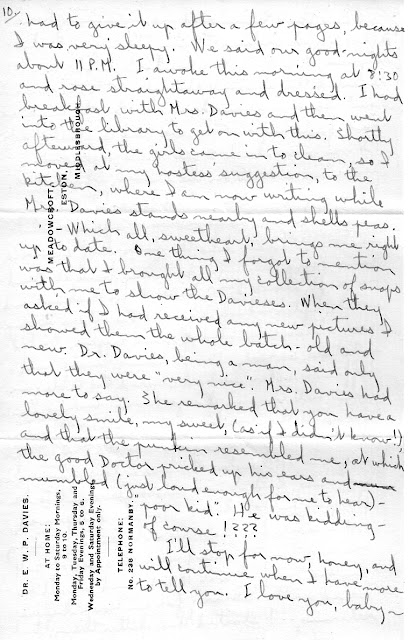 10.
had to give it up after a few pages, because
I was very sleepy. We said our good-nights
about 11 P.M. I awoke this morning at 8:30
and rose straightaway and dressed. I had
breakfast with Mrs. Davies and then went
into the library to get on with this. Shortly
afterward, the girls came in to clean, so I
moved, at my hostess' suggestion, to the
kitchen, where I am now writing while
Mrs. Davies stands nearby and shells peas.
— Which all, sweetheart, brings me right
up to date. One thing I forgot to mention
was that I brought all my collection of snaps
with me to show the Davieses. When they
asked if I had received any new pictures I
showed them the whole batch - old and
new. Dr. Davies, being a man, said only
that they were "very nice". Mrs. Davies had
more to say. She remarked that you have a
lovely smile, my sweet, (as if I didn't know!),
and that the punkin resembled me, at which
the good Doctor pricked up his ears and
mumbled (just loud enough for me to hear) -
"poor kid". He was kidding -
of course!???
I'll stop for now, honey, and
will continue when I have more
to tell you. I love you, baby -
MEADOWCROFT,
ESTON,
MIDDLESBROUGH.
DR. E. W. P. DAVIES.
AT HOME:
Monday to Saturday Mornings,
9 to 10.
Monday, Tuesday, Thursday and
Friday Evenings, 5 to 6.
Wednesday and Saturday Evenings
by Appointment only.
TELEPHONE:
No. 238 NORMANBY.